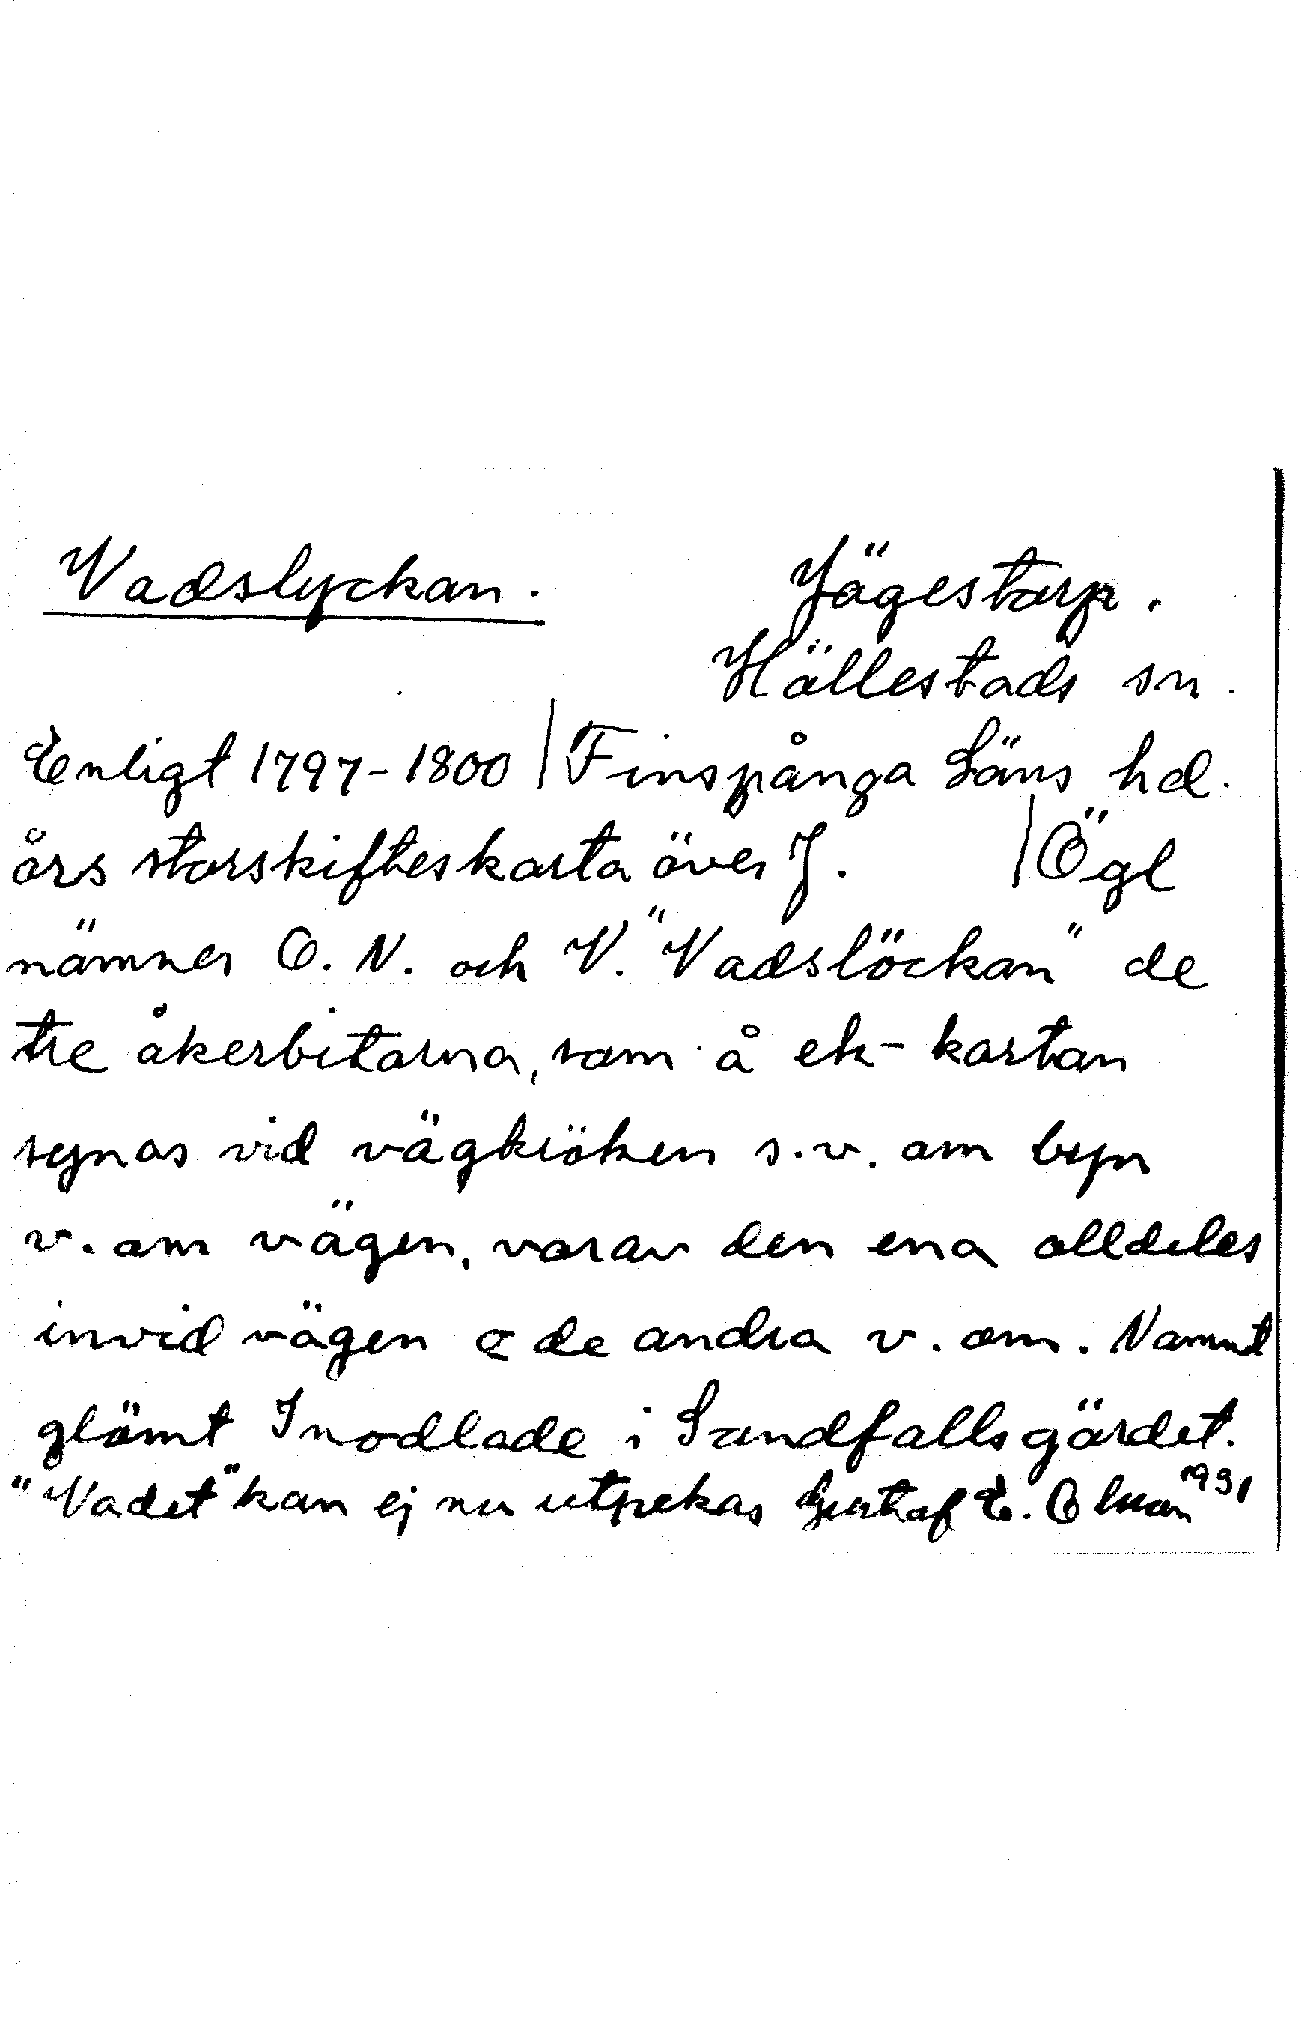 Vadslyckan. Jägestorp.
Hällestads sn.
Enligt 1797-1800 | Finspånga Läns hd.
års storskifteskarta över J. | Ögl
nämner O. N. och V. "Vadslöckan" de
tre åkerbitarna, som å ek-kartan
synas vid vägkröken s.v. om byn
v. om vägen, varav den ena alldeles
invid vägen o de andra v. om. Namnet
glömt Inodlade i Sandfallsgärdet.
"Vadet" kan ej nu utpekas Gustaf E. 1931